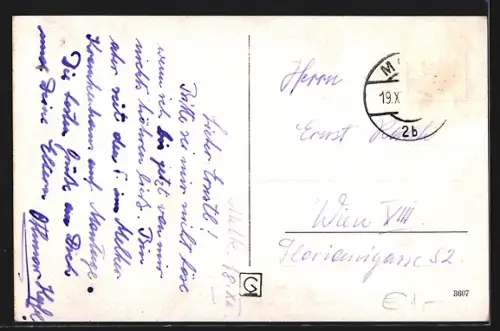 Melk, 18. XI.
Lieber Ernstl!
Bitte sei mir nicht böse
wenn ich bis jetzt von mir
nichts hören ließ. Bin
aber seit der 1. im Melker
Krankenhaus auf Montage.
Die besten Grüße an Dich
und Deine Eltern Othmar
Herrn
Ernst
Wien VIII
Florianigasse 52.
M
19.X
2b
G
3607
€ 1.-